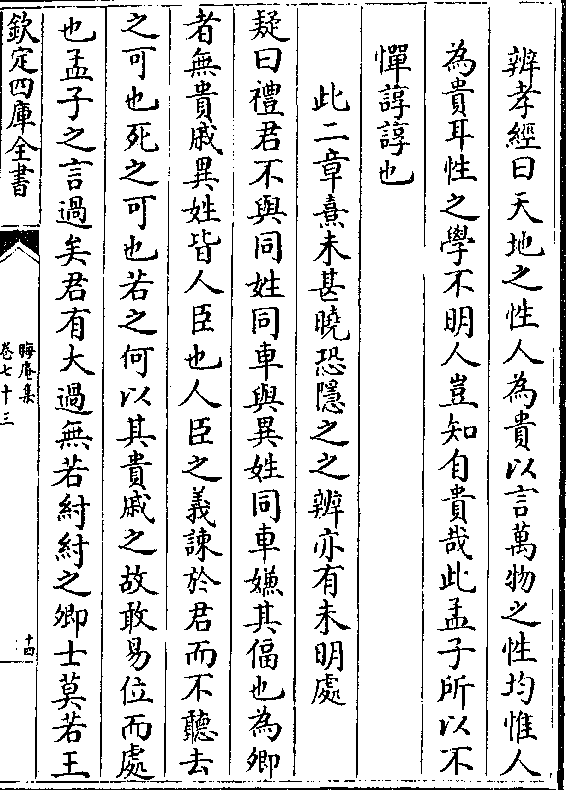 辨孝經曰天地之性人為貴以言萬物之性均惟人
為貴耳性之學不明人豈知自貴哉此孟子所以不
憚諄諄也
此二章熹未甚曉恐隱之之辨亦有未明處
疑曰禮君不與同姓同車與異姓同車嫌其偪也為卿
者無貴戚異姓皆人臣也人臣之義諫於君而不聽去
之可也死之可也若之何以其貴戚之故敢易位而處
也孟子之言過矣君有大過無若紂紂之卿士莫若王
欽定四庫全書
晦庵集
卷七十三
十四